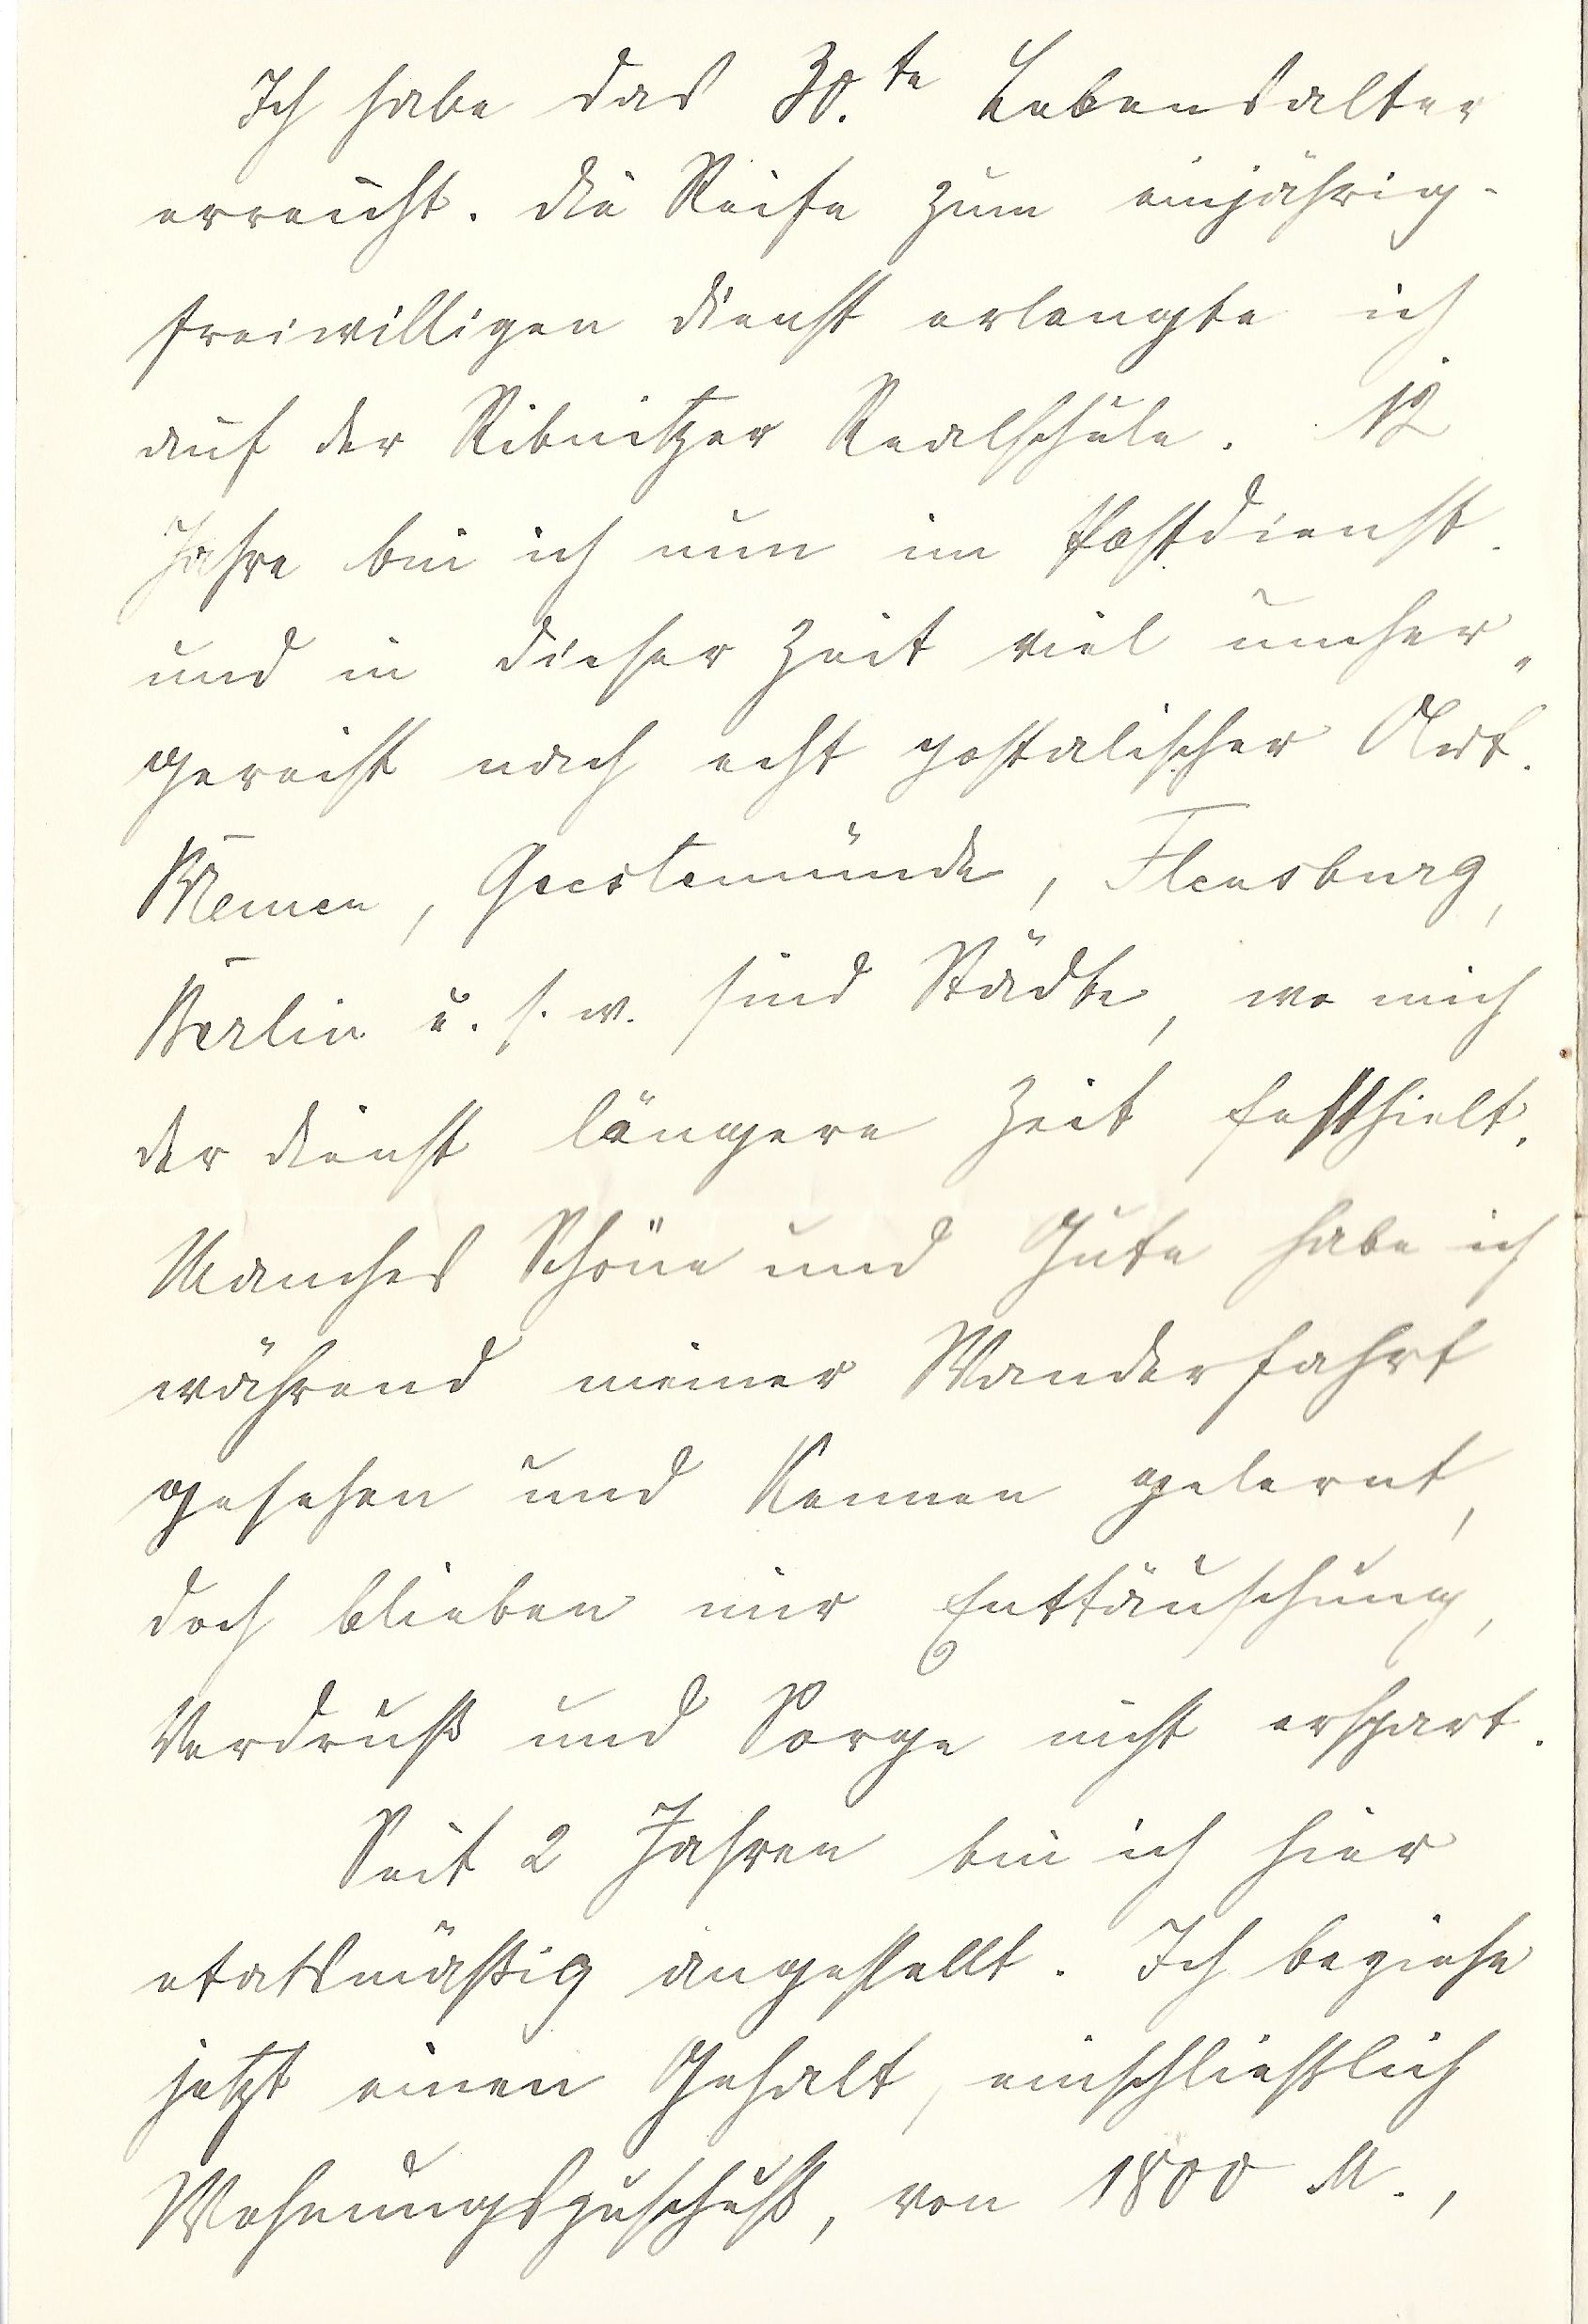 Ich habe das 30.te Lebensalter
erreicht. Die Reife zum einjährig-
freiwilligen Dienst erlangte ich
auf der Ribnitzer Realschule. 12
Jahre bin ich nun im Postdienst.
und in dieser Zeit viel umher„
gereist nach echt postalischer Art.
Bremen, Geestemünde, Flensburg,
Berlin u. s. w. sind Städte, wo mich
der Dienst längere Zeit festhielt.
Manches Schöne und Gute habe ich
während meiner Wanderfahrt
gesehen und kennen gelernt,
doch blieben mir Enttäuschung,
Verdruß und Sorge nicht erspart.
Seit 2 Jahren bin ich hier
etatsmäßig angestellt. Ich beziehe
jetzt einen Gehalt, einschließlich
Wohnungszuschuß, von 1800 M.,